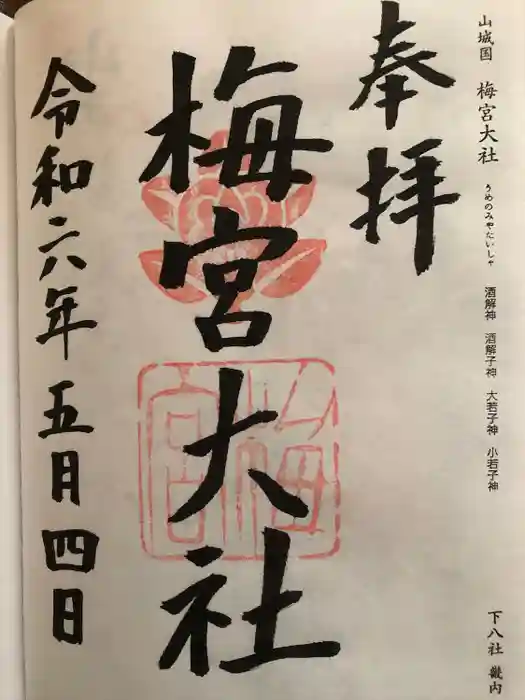 山城国 梅宮大社 うめのみやたいしゃ 酒解神 酒解子神 大若子神 小若子神
下八社 畿内
奉拝
梅宮大社
梅宮
令和六年五月四日